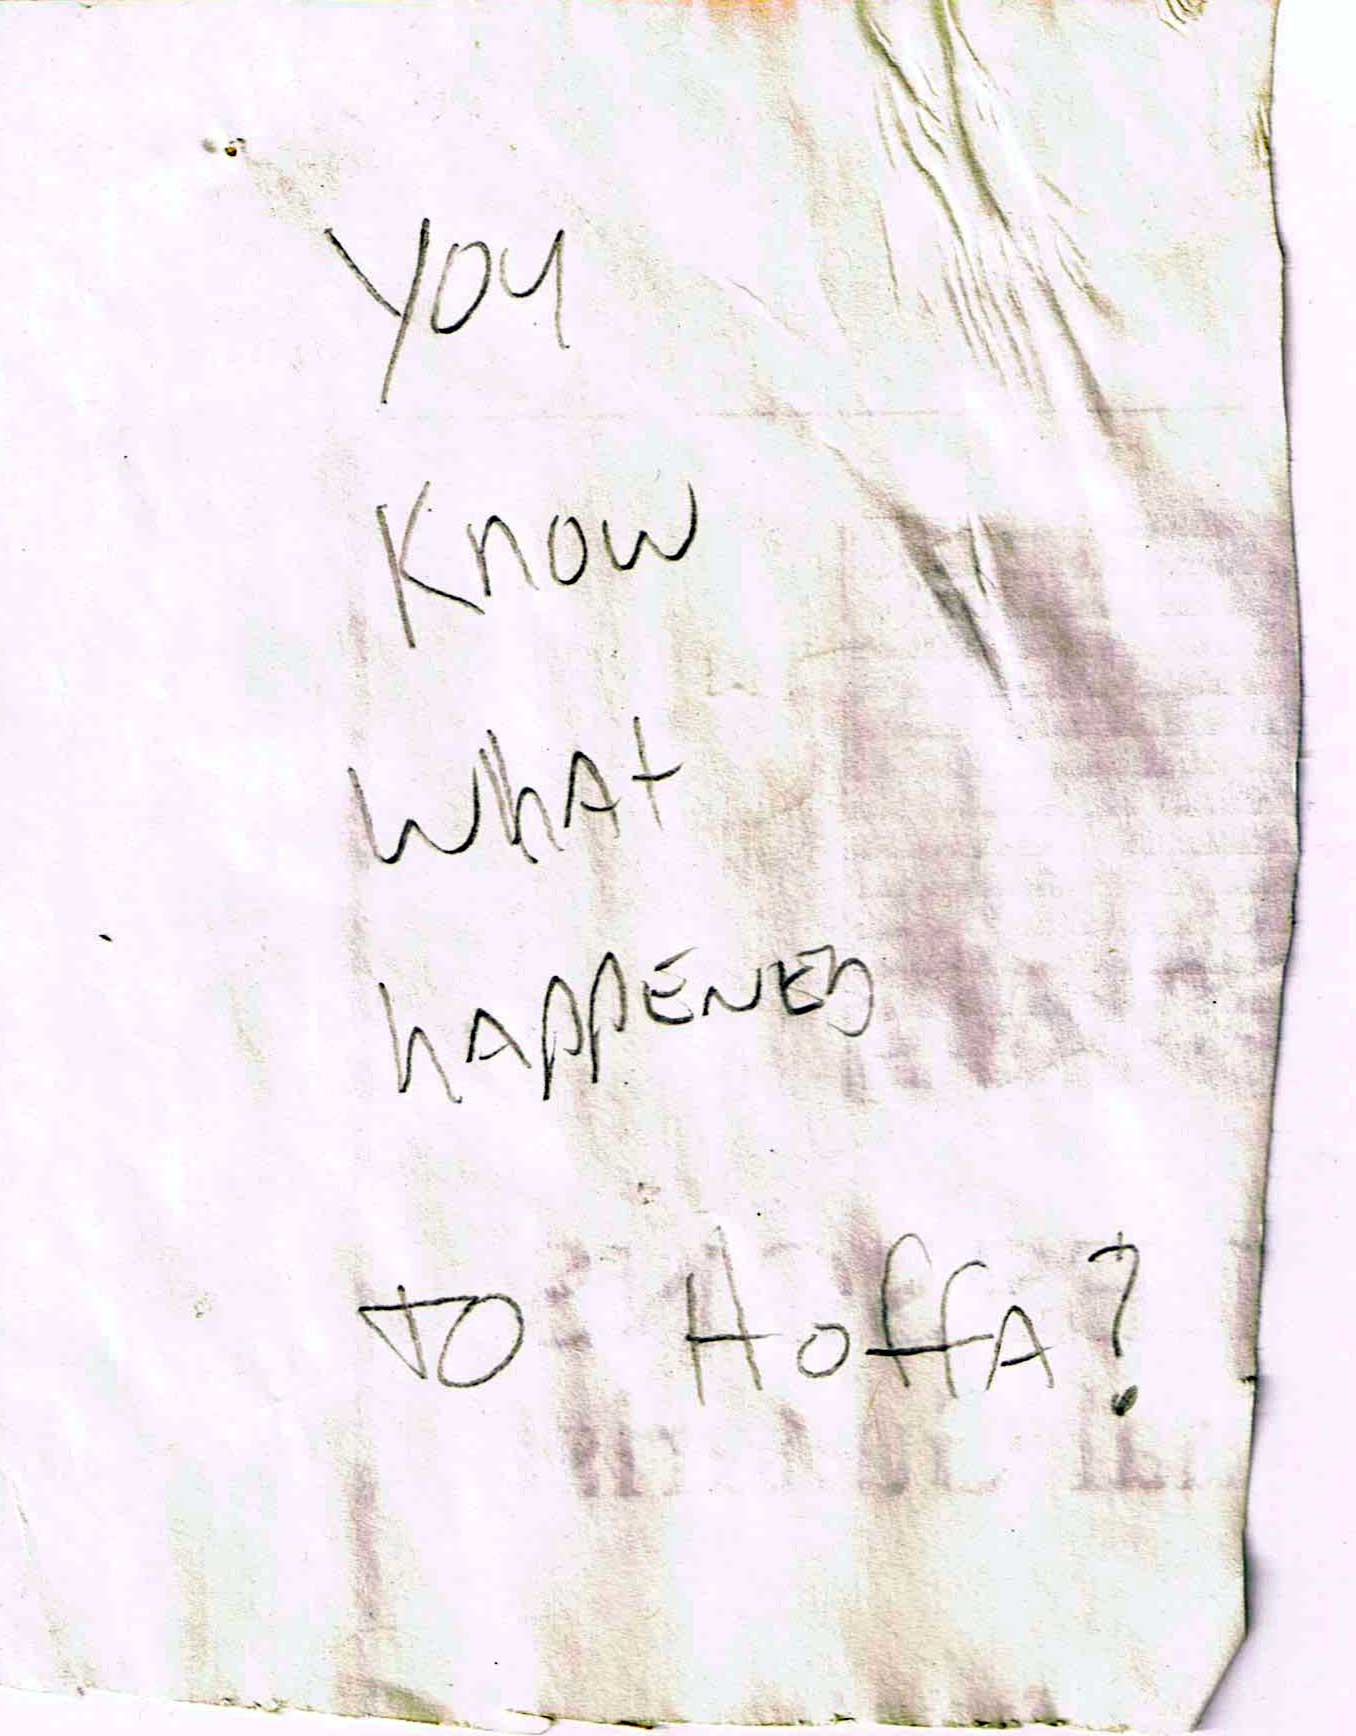 you
Know
WhAt
hAppENED
TO HoffA?